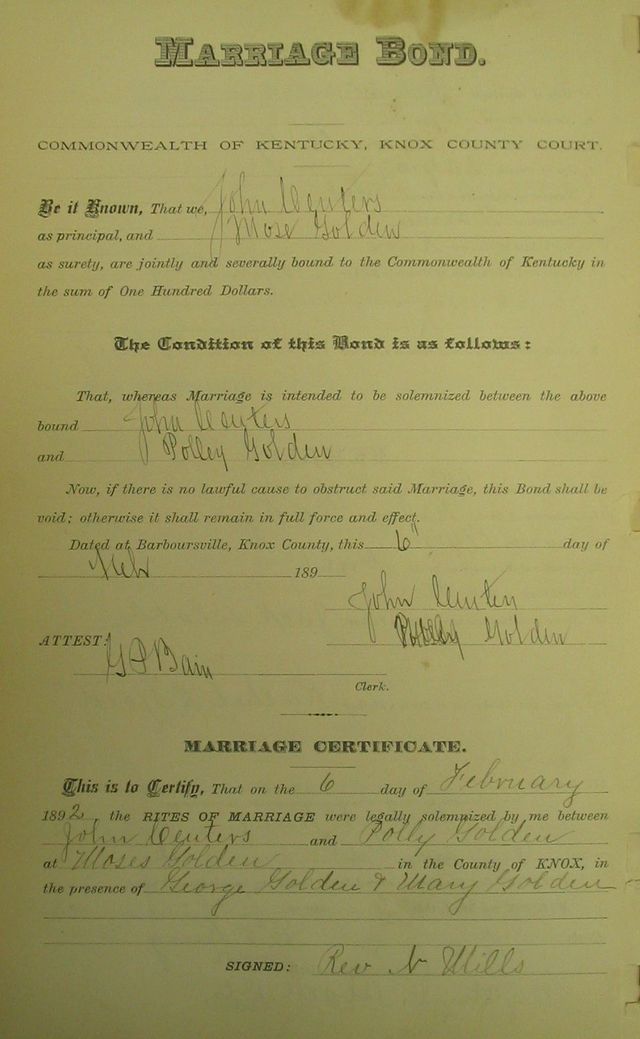 MARRIAGE BOND.
COMMONWEALTH OF KENTUCKY, KNOX COUNTY COURT.
Be it Known, That we, John Centers
as principal, and Mose Golden
as surety, are jointly and severally bound to the Commonwealth of Kentucky in
the sum of One Hundred Dollars.
The Condition of this Bond is as follows:
That, whereas Marriage is intended to be solemnized between the above
bound John Centers
and Polley Golden
Now, if there is no lawful cause to obstruct said Marriage, this Bond shall be
void; otherwise it shall remain in full force and effect.
Dated at Barboursville, Knox County, this 6" day of
Feb 189
John Centers
ATTEST: Golden
G P Bain
Clerk.
MARRIAGE CERTIFICATE.
This is to Certify, That on the 6 day of February
1892, the RITES OF MARRIAGE were legally solemnized by me between
John Centers and Polly Golden
at Moses Golden in the County of KNOX, in
the presence of George Golden & Mary Golden
SIGNED: Rev N Mills